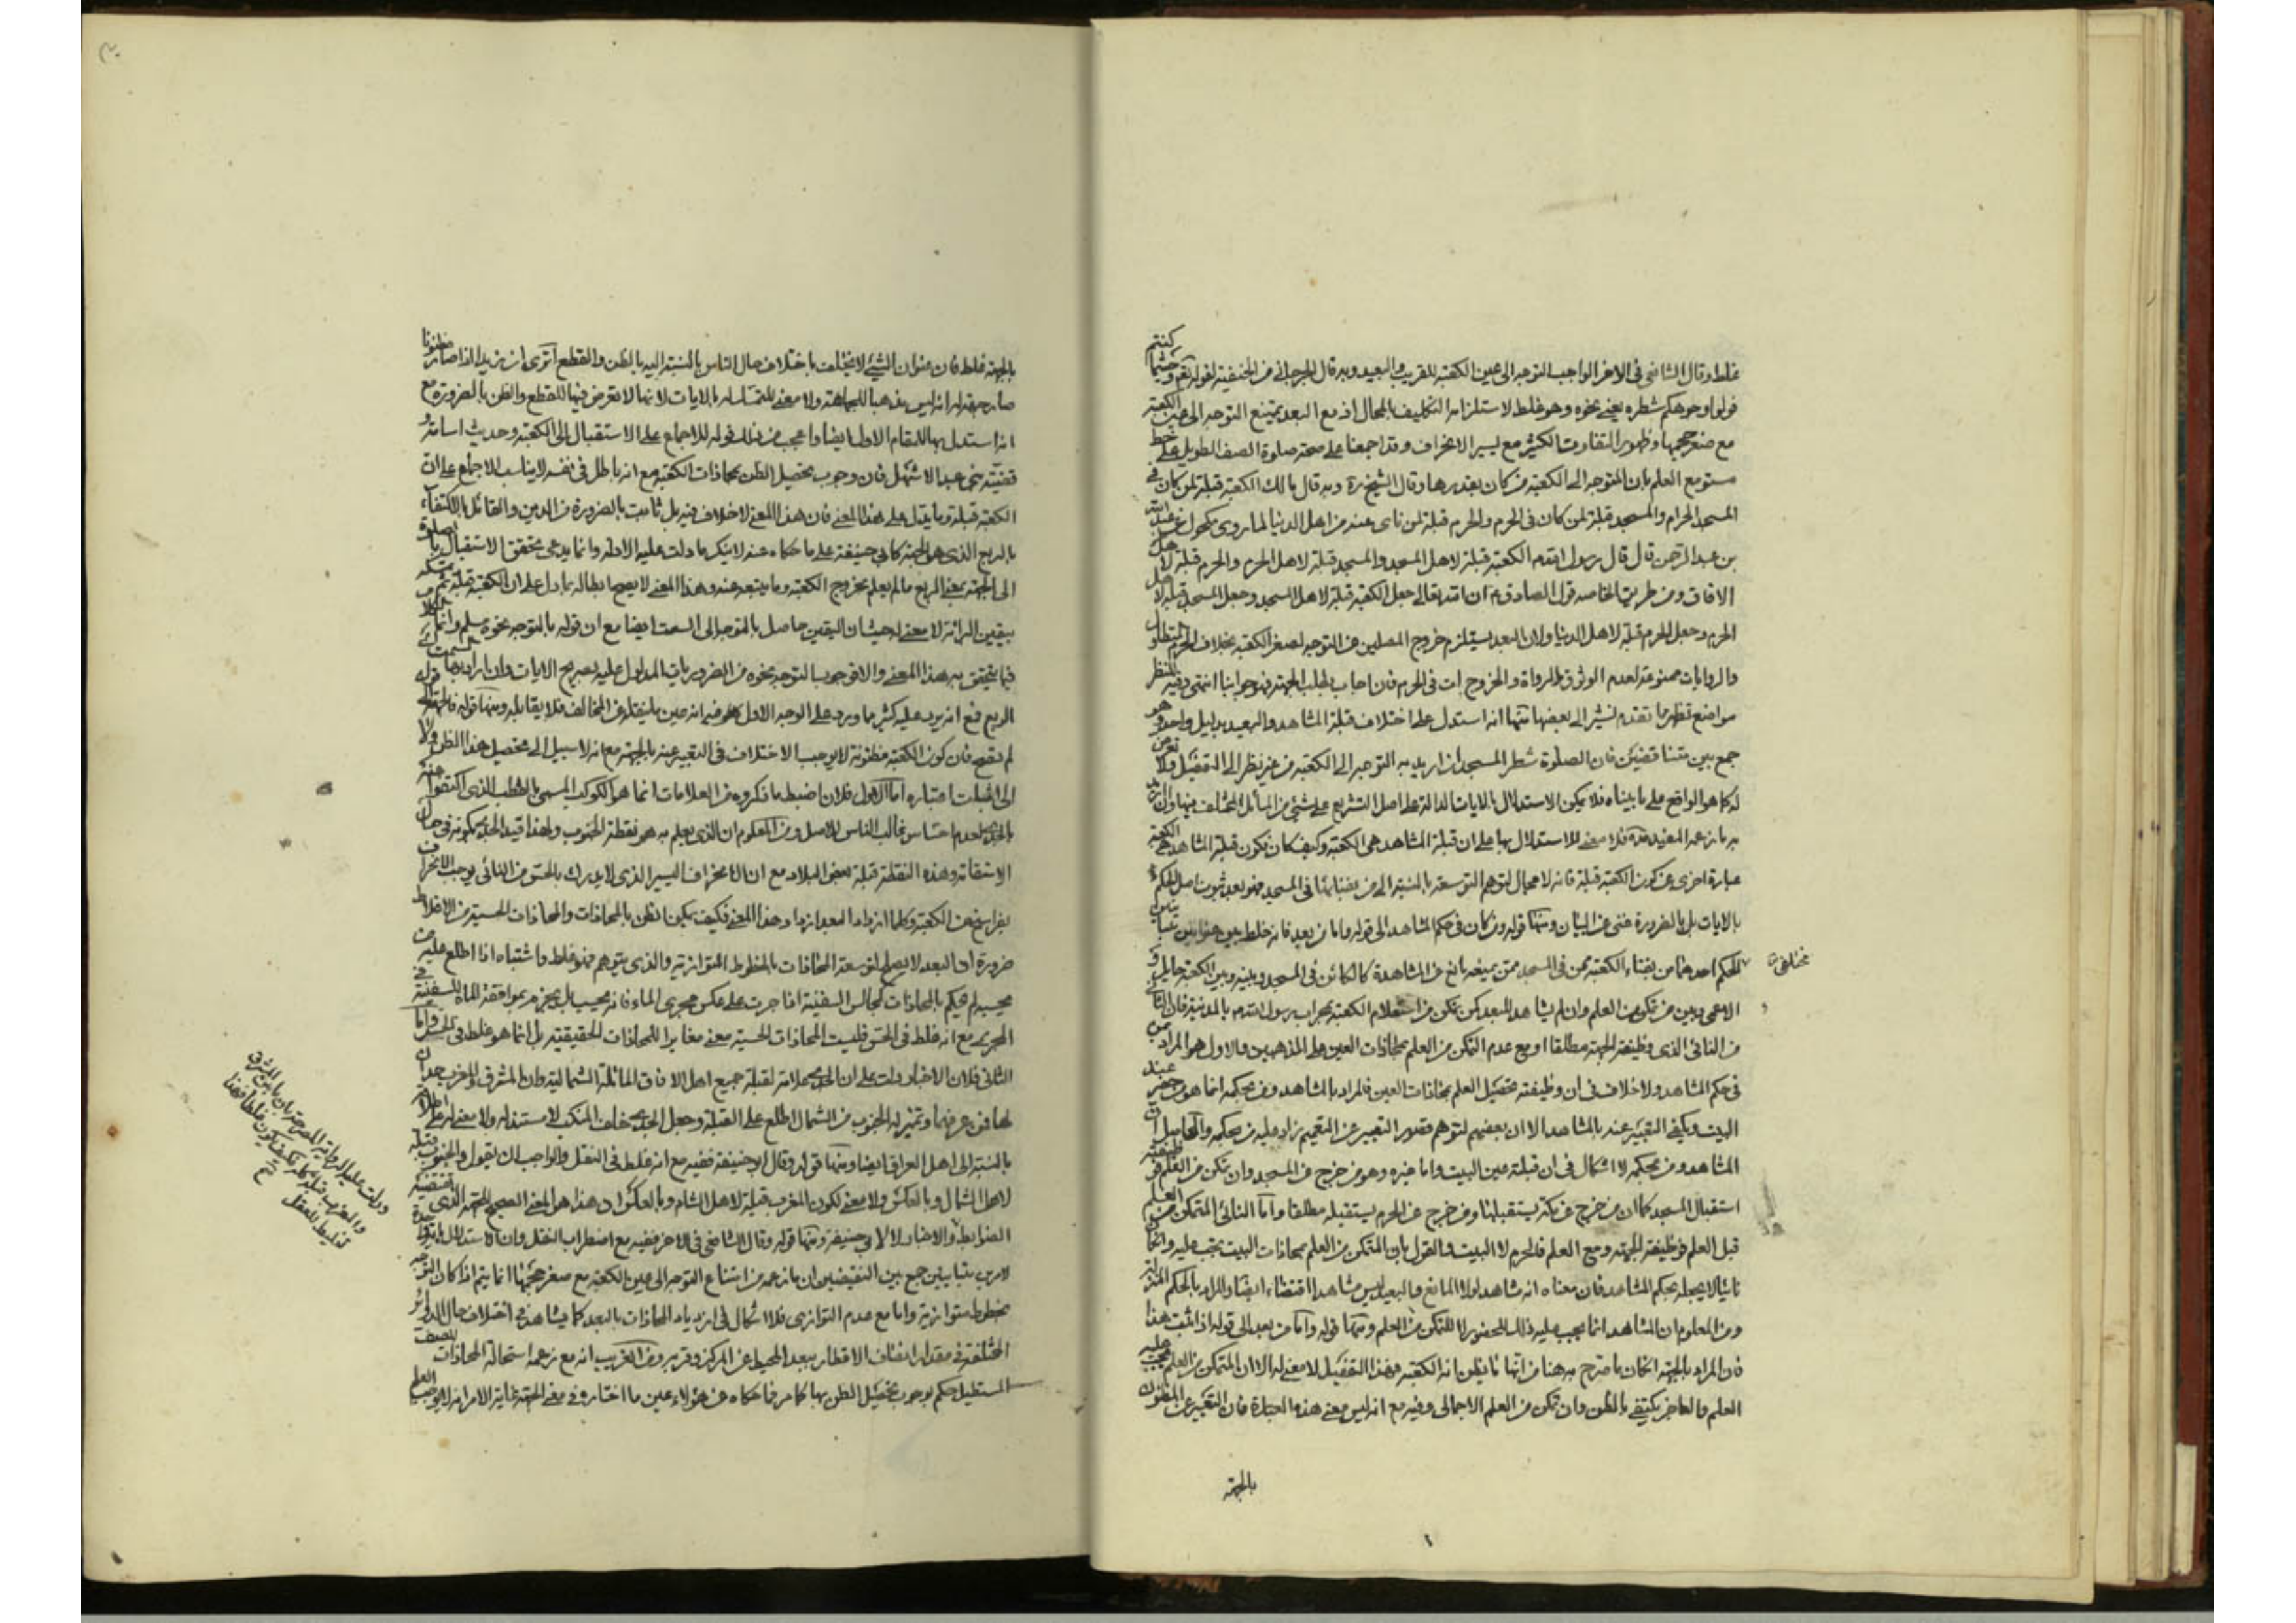 غلط وقال الشافعي في الاخر الواجب التوجه الى عين الكعبة للقريب والبعيد وبه قال الجرجاني من الحنفية لقوله تعم وحيثما كنتم
فولوا وجوهكم شطره يعني نحوه وهو غلط لاستلزامه التكليف بالمحال اذ مع البعد يمتنع التوجه الى عين الكعبة
مع صغر حجمها وظهور التفاوت الكثير مع يسير الانحراف وقد اجمعنا على صحة صلوة الصف الطويل على خط
مستو مع العلم بان المتوجه الى الكعبة من كان بقدرها وقال الشيخ ره وبه قال مالك الكعبة قبلة لمن كان في
المسجد الحرام والمسجد قبلة لمن كان في الحرم والحرم قبلة لمن ناى عنه من اهل الدنيا لما روى مكحول عن عبد الله
بن عبد الرحمن قال قال رسول الله الكعبة قبلة لاهل المسجد والمسجد قبلة لاهل الحرم والحرم قبلة لاهل
الافاق ومن طريق الخاصة قول الصادق ع ان الله تعالى جعل الكعبة قبلة لاهل المسجد وجعل المسجد قبلة لاهل
الحرم وجعل الحرم قبلة لاهل الدنيا ولان البعد يستلزم خروج المصلين عن التوجه لصغر الكعبة بخلاف الحرم لتطاول
والروايات ممنوعة لعدم الوثوق بالرواة والخروج ات في الحرم فان اجاب بطلب الجهة فهو جوابنا انتهى وفيه للنظر
مواضع تظهر مما تقدم نشير الى بعضها منها انه استدل على اختلاف قبلة المشاهد والبعيد بدليل واحد وهو
جمع بين متناقضين فان الصلوة شطر المسجد ان اريد به التوجه الى الكعبة من غير نظر الى التفصيل ولا تعرض
له كما هو الواقع على ما بيناه فلا يمكن الاستدلال بالايات الدالة على اصل التشريع على شئ من المسائل المختلف فيها وان اريد
به ما زعمه المفيد قده فلا معنى للاستدلال بها على ان قبلة المشاهد هي الكعبة وكيف كان فكون قبلة المشاهد هي الكعبة
عبارة اخرى عن كون الكعبة قبلة فانه لا مجال لتوهم التوسعة بالنسبة الى من بفنائها في المسجد فهو بعد ثبوت اصل الحكم
بالايات بل بالضرورة غنى عن البيان ومنها قوله ومن كان في حكم المشاهد الى قوله واما من بعد فانه خلط بين عنوانين
مختلفي
الحكم احدهما من بفناء الكعبة ممن في المسجد ممن يمنعه مانع عن المشاهدة كالكائن في المسجد وبينه وبين الكعبة حايل و
الاعمى وبين من تمكن من العلم وان لم يشاهد للبعد كمن تمكن من استعلام الكعبة بمحراب رسول الله بالمدينة فان الثاني
من النائي الذي وظيفته الجهة مطلقا او مع عدم التمكن من العلم بمحاذات العين على المذهبين والاول هو المراد بمن
في حكم المشاهد ولا خلاف في ان وظيفته تحصيل العلم بمحاذات العين فالمراد بالمشاهد ومن بحكمه انما هو من حضر عند
البيت ويكفي التعبير عنه بالمشاهد الا ان بعضهم لتوهم قصور التعبير عن التعميم زاد عليه من بحكمه والحاصل ان
المشاهد ومن بحكمه لا اشكال في ان قبلته عين البيت واما غيره وهو من خرج عن المسجد وان تمكن من العلم فوظيفته
استقبال المسجد كما ان من خرج عن مكة يستقبلها ومن خرج عن الحرم يستقبله مطلقا واما النائي المتمكن من العلم
قبل العلم فوظيفته الجهة ومع العلم فالحرم لا البيت والقول بان المتمكن من العلم بمحاذات البيت يجب عليه وان كان
نائيا لا يجعله بحكم المشاهد فان معناه انه مشاهد لولا المانع والبعيد ليس مشاهدا اقتضاء ايضا والمراد بالحكم المنزلة
ومن المعلوم ان المشاهد انما يجب عليه ذلك للحضور لا للتمكن من العلم ومنها قوله واما من بعد الى قوله اذا ثبت هذا
فان المراد بالجهة ان كان ما صرح به هنا من انها ما يظن انه الكعبة فهذا التفصيل لا معنى له الا ان المتمكن من العلم يجب عليه
العلم والعاجز يكتفي بالظن وان تمكن من العلم الاجمالي وفيه مع انه ليس معنى هذه العبارة فان التعبير عن المظنون
بالجهة
بالجهة غلط فان عنوان الشئ لا يختلف باختلاف حال الناس بالنسبة اليه بالظن والقطع اترى ان زيدا اذا صار مظنونا
صار جهة له انه ليس مذهبا للجماعة ولا معنى للتمسك له بالايات لانها لا تعرض فيها للقطع والظن بالضرورة مع
انه استدل بها للمقام الاول ايضا واعجب من ذلك قوله للاجماع على الاستقبال الى الكعبة وحديث اسامة و
قضية بني عبد الاشهل فان وجوب تحصيل الظن بمحاذات الكعبة مع انه باطل في نفسه لا يناسب الاجماع على ان
الكعبة قبلة وما يدل على هذا المعنى فان هذا المعنى لا خلاف فيه بل ثابت بالضرورة من الدين والقائل بالاكتفاء
بالربع الذي هو الجهة كابي حنيفة على ما حكاه عنه لا ينكر ما دلت عليه الادلة وانما يدعى تحقق الاستقبال بالصلوة
الى الجهة بمعنى الربع ما لم يعلم بخروج الكعبة وما يتبعه عنه وهذا المعنى لا يصح ابطاله بما دل على ان الكعبة قبلة ثم
بيقين البرائة لا معنى له حيث ان اليقين حاصل بالتوجه الى السمت ايضا مع ان قوله بالتوجه نحوه مسلم وانما
فيما يتحقق به هذا المعنى والا فوجوب التوجه نحوه من الضروريات المدلول عليه بصريح الايات وان اراد بها
الربع فمع انه يرد عليه كثير مما ويرد على الوجه الاول
لم يصح فان كون الكعبة مظنونة لا يوجب الاختلاف في التعبير عنه بالجهة مع انه لا سبيل الى تحصيل هذا الظن ولا
الى اثبات اعتباره اما الاول فلان اضبط ما ذكروه من العلامات انما هو الكوكب المسمى بالقطب الذي اكتفوا عنه
بالجدي لعدم احساس غالب الناس للاصل ومن المعلوم ان الذي يعلم به هو نقطة الجنوب ولهذا قيد الجدي بكونه في حال
الاستقامة وهذه النقطة قبلة بعض البلاد مع ان الانحراف اليسير الذي لا يدرك بالحس من النائي يوجب الانحراف
بفراسخ عن الكعبة وكلما ازداد البعد ازداد هذا المعنى فكيف يمكن الظن بالمحاذات والمحاذات الحسية من الاغلاط
ضرورة ان البعد لا يصلح لتوسعة المحاذات بالخطوط المتوازية والذي يتوهم فهو غلط واشتباه اذا اطلع عليه من
يحسبه لم يحكم بالمحاذات كجالس السفينة اذا جرت على عكس مجرى الماء فانه يحسب بل يجزم بموافقة الماء للسفينة في
المجرى مع انه غلط في الحس فليست المحاذات الحسية معنى مغايرا للمحاذات الحقيقية بل انما هو غلط في الحس واما
الثاني فلان الاخبار دلت على ان الجدي علامة لقبلة جميع اهل الافاق المائلة الشمالية وان المشرق والمغرب حدان
لها فمن عرفها وتميز له الجنوب من الشمال اطلع على القبلة وجعل الجدي خلف المنكب لا مستند له ولا معنى له
بالنسبة الى اهل العراق ايضا ومنها قوله وقال ابو حنيفة ففيه مع انه غلط في النقل والواجب ان يقول والجنوب قبلة
لاهل الشمال وبالعكس ولا معنى لكون المغرب قبلة لاهل الشام وبالعكس ان هذا هو المعنى الصحيح للجهة الذي
الضوابط والاخبار لا لابي حنيفة ومنها قوله وقال الشافعي في الاخر ففيه مع اضطراب النقل وان الاستدلال
لامرين متباينين جمع بين النقيضين ان ما زعمه من امتناع التوجه الى عين الكعبة مع صغر حجمها انما يتم اذا كان التوجه
بخطوط متوازية واما مع عدم التوازي فلا اشكال في ازدياد المحاذات بالبعد كما يشاهد في اختلاف حال الدوائر
المختلفة في مقدار انفتاح الاقطار ببعد المحيط عن المركز وقربه ومن الغريب انه مع زعمه استحالة المحاذات للصف
المستطيل حكم بوجوب تحصيل الظن بها كما مر فما حكاه عن هؤلاء عين ما اختاره في معنى الجهة غاية الامر انه لا يوجب العلم
ودلت عليه الرواية المصرحة بان ما بين المشرق
والمغرب قبلة كله فكيف يكون غلطا فهذا
تغليط للعقل